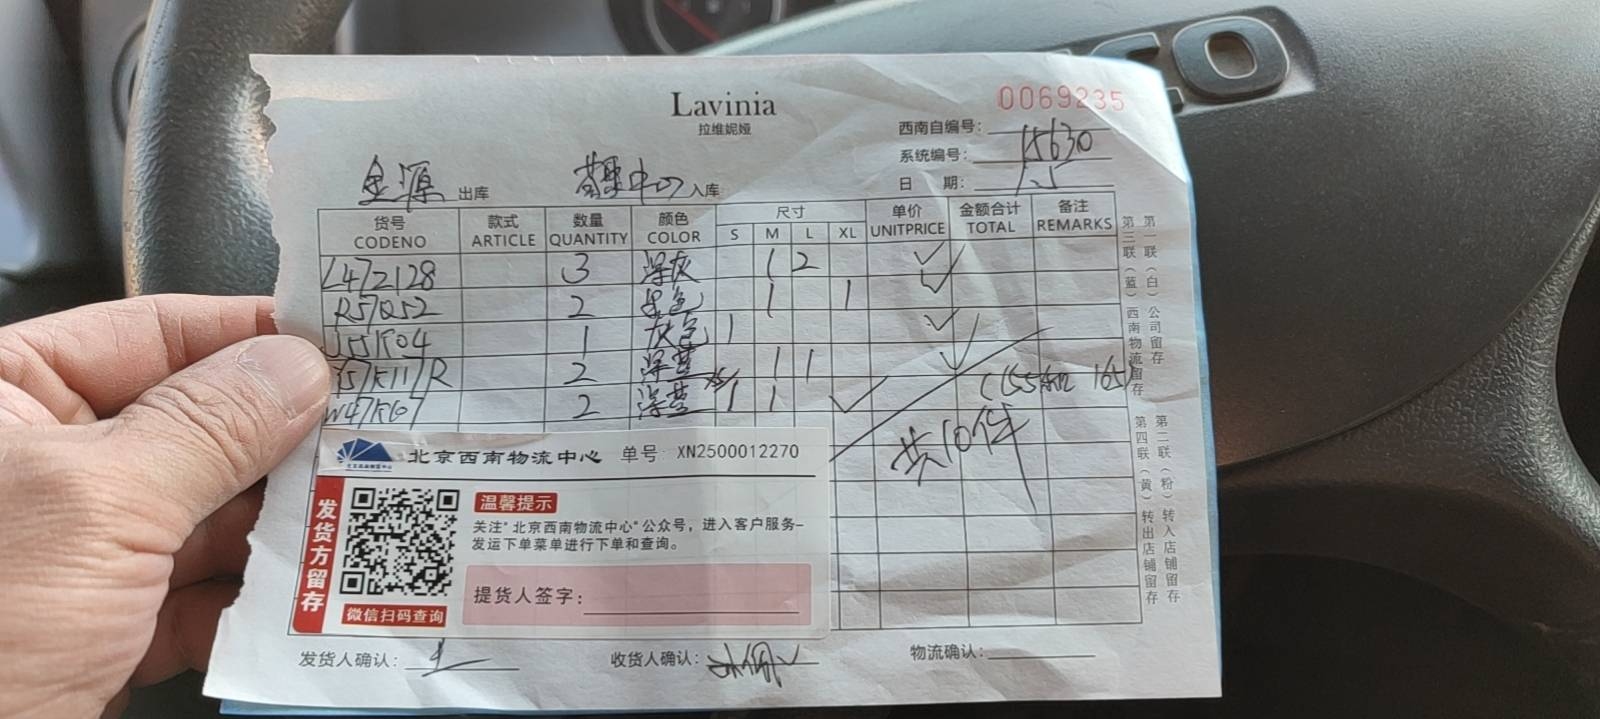 Lavinia
拉维妮娅
0069235
西南自编号：
系统编号：15630
日 期：
金源 出库 中心 入库
货号 款式 数量 颜色 尺寸 单价 金额合计 备注
CODENO ARTICLE QUANTITY COLOR S M L XL UNITPRICE TOTAL REMARKS
L472128 3 深灰 1 2
R57R52 2 黑色 1 1
J55K04 1 灰色 1
Y57K117R 2 深蓝 1 1
W47K607 2 深蓝 1 1
共10件
北京西南物流中心 单号 XN2500012270
发货方留存
温馨提示
关注"北京西南物流中心"公众号，进入客户服务-
发运下单菜单进行下单和查询。
提货人签字：
微信扫码查询
发货人确认： 收货人确认： 物流确认：
第一联（白）公司留存
第二联（粉）转入店铺留存
第三联（蓝）西南物流留存
第四联（黄）转出店铺留存